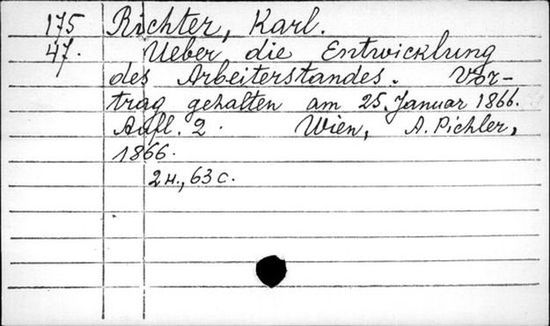 175 Richter, Karl.
47. Ueber die Entwicklung
des Arbeiterstandes. Vor-
trag gehalten am 25. Januar 1866.
Aufl. 2. Wien, A. Pichler,
1866.
2 н., 63 с.